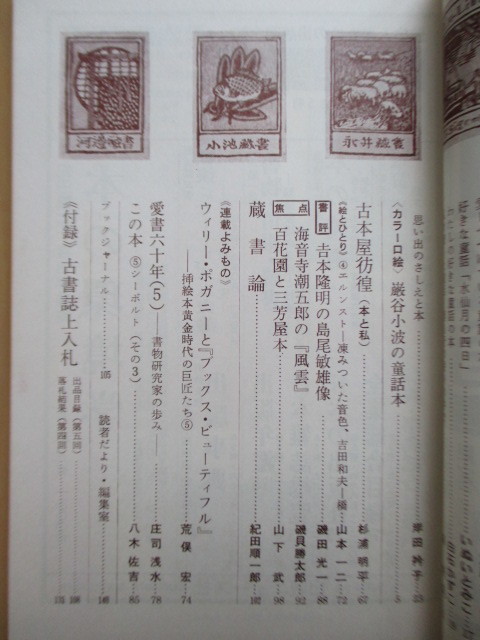 好きな童話「水仙月の四日」
思い出のさしえと本 岸田衿子 53
〈カラー口絵〉巌谷小波の童話本 5
永井蔵書
小池蔵書
河邊蔵書
古本屋彷徨（本と私） 杉浦明平 67
《絵とひとり》④エルンスト―凍みついた音色、吉田和夫―橋 山本一二 72
書評 吉本隆明の島尾敏雄像 磯田光一 88
海音寺潮五郎の『風雲』 磯貝勝太郎 92
焦点 百花園と三芳屋本 山下武 98
蔵書論 紀田順一郎 102
《連載よみもの》
ウィリー・ポガニーと『ブックス・ビューティフル』
――挿絵本黄金時代の巨匠たち⑤ 荒俣宏 74
愛書六十年(5)――書物研究家の歩み―― 庄司浅水 78
この本 ⑤シーボルト（その3） 八木佐吉 85
ブックジャーナル 105
読者だより・編集室 146
《付録》古書誌上入札
出品目録（第五回） 108
落札結果（第四回）